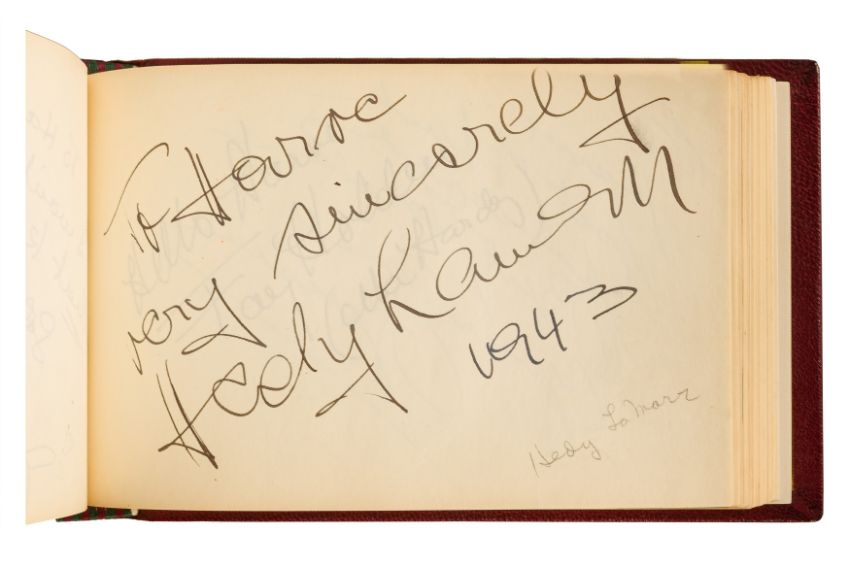 To Harve
very sincerely
Hedy Lamarr
1943
Hedy La Marr